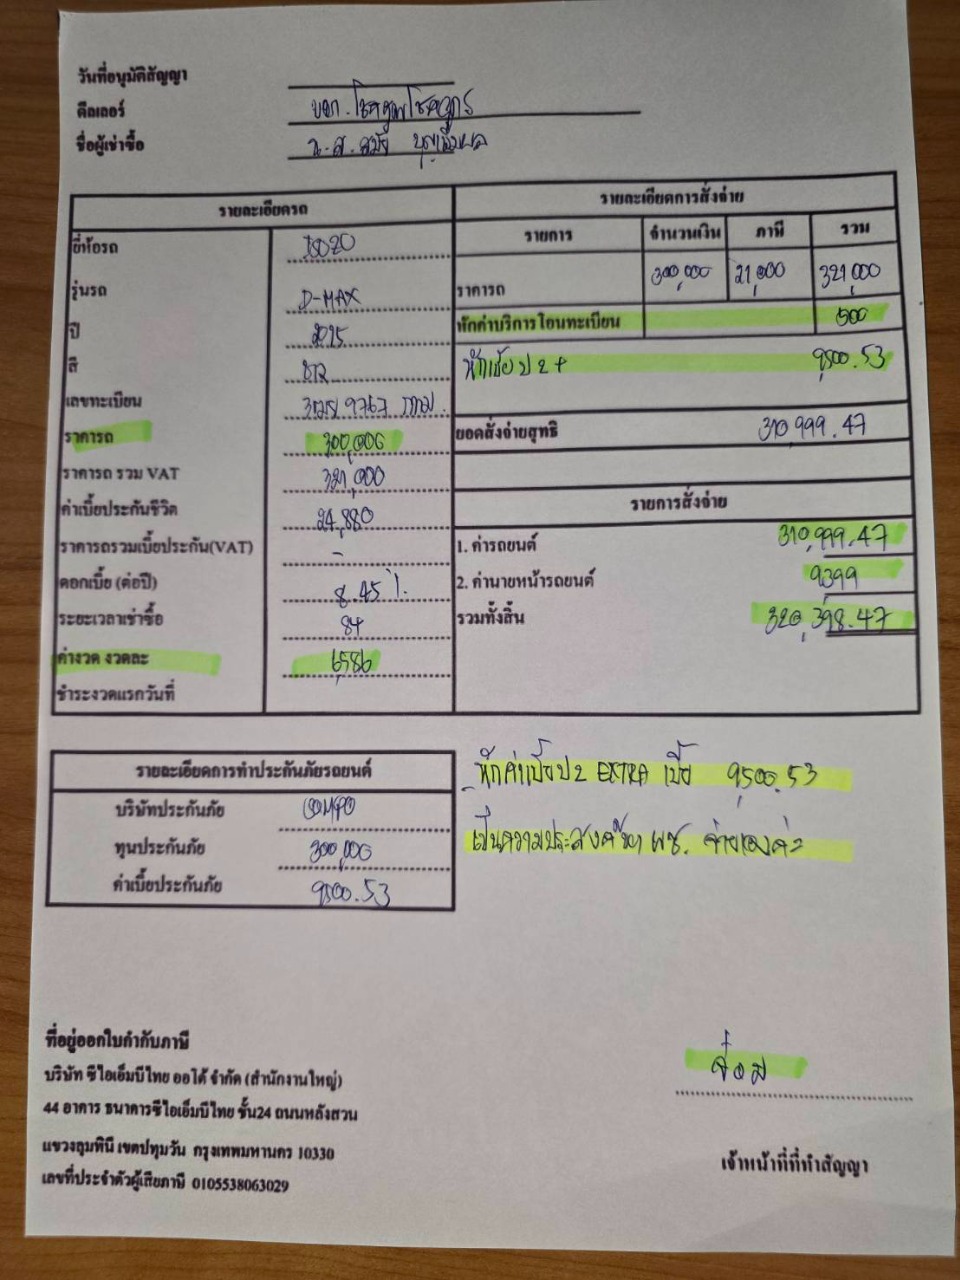 วันที่อนุมัติสัญญา
ดีลเลอร์ บจก.
ชื่อผู้เช่าซื้อ น.ส.
รายละเอียดรถ
ยี่ห้อรถ
รุ่นรถ D-MAX
ปี 2015
สี ขาว
เลขทะเบียน 9767 กทม.
ราคารถ 300,000
ราคารถ รวม VAT 321,000
ค่าเบี้ยประกันชีวิต 24,880
ราคารถรวมเบี้ยประกัน(VAT) -
ดอกเบี้ย (ต่อปี) 8.45 %
ระยะเวลาเช่าซื้อ 84
ค่างวด งวดละ 6,586
ชำระงวดแรกวันที่
รายละเอียดการสั่งจ่าย
รายการ จำนวนเงิน ภาษี รวม
ราคารถ 300,000 21,000 321,000
หักค่าบริการโอนทะเบียน 500
หักเบี้ย ป 2+ 9,500.53
ยอดสั่งจ่ายสุทธิ 310,999.47
รายการสั่งจ่าย
1. ค่ารถยนต์ 310,999.47
2. ค่านายหน้ารถยนต์ 9,399
รวมทั้งสิ้น 320,398.47
รายละเอียดการทำประกันภัยรถยนต์
บริษัทประกันภัย
ทุนประกันภัย 300,000
ค่าเบี้ยประกันภัย 9,500.53
หักค่าเบี้ย ป2 EXTRA เบี้ย 9,500.53
เป็นความประสงค์ของ ผช. จ่ายเองค่ะ
ที่อยู่ออกใบกำกับภาษี
บริษัท ซีไอเอ็มบีไทย ออโต้ จำกัด (สำนักงานใหญ่)
44 อาคาร ธนาคารซีไอเอ็มบีไทย ชั้น24 ถนนหลังสวน
แขวงลุมพินี เขตปทุมวัน กรุงเทพมหานคร 10330
เลขที่ประจำตัวผู้เสียภาษี 0105538063029
เจ้าหน้าที่ที่ทำสัญญา